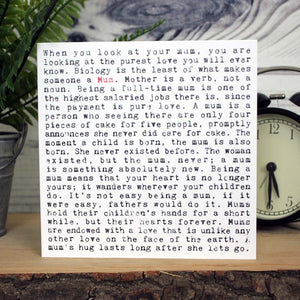 When you look at your mum, you are
looking at the purest love you will ever
know. Biology is the least of what makes
someone a Mum. Mother is a verb, not a
noun. Being a full-time mum is one of
the highest salaried jobs there is, since
the payment is pure love. A mum is a
person who seeing there are only four
pieces of cake for five people, promptly
announces she never did care for cake. The
moment a child is born, the mum is also
born. She never existed before. The woman
existed, but the mum, never; a mum
is something absolutely new. Being a
mum means that your heart is no longer
yours; it wanders wherever your children
do. It's not easy being a mum, if it
were easy, fathers would do it. Mums
hold their children's hands for a short
while, but their hearts forever. Mums
are endowed with a love that is unlike any
other love on the face of the earth. A
mum's hug lasts long after she lets go.